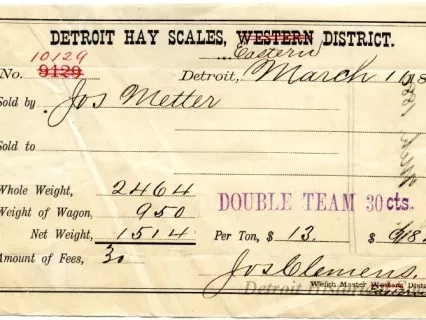 DETROIT HAY SCALES, WESTERN DISTRICT.
Eastern
10129
No. 9129 Detroit, March 1
Sold by Jos Metter
Sold to
Whole Weight, 2464
Weight of Wagon, 950
DOUBLE TEAM 30 cts.
Net Weight, 1514 Per Ton, $ 13. $
Amount of Fees, 30
Jos Clemens.
Weigh Master Western Dist
Detroit Historical